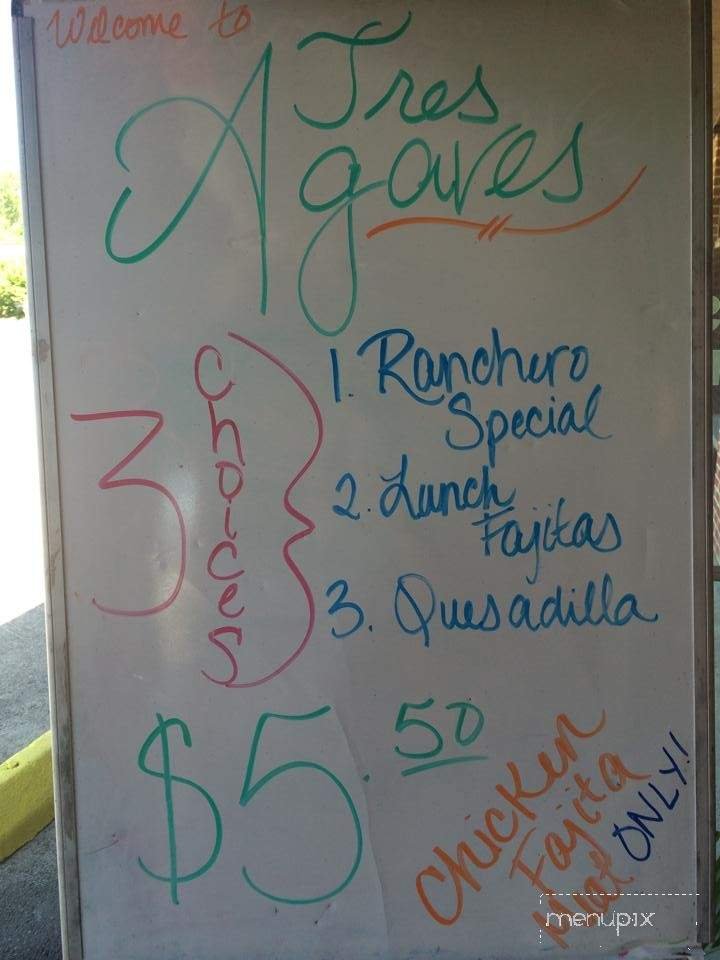 Welcome to
Tres
Agaves
3 Choices
1. Ranchero
Special
2. Lunch
Fajitas
3. Quesadilla
$5.50
Chicken
Fajita
Meat ONLY!
menupix